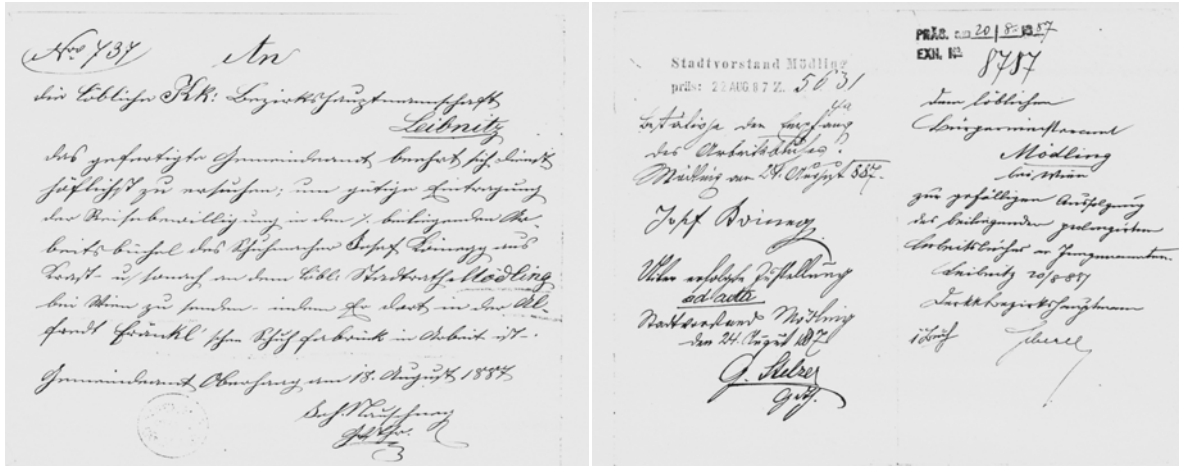 Nro 737
An
die löbliche Kk: Bezirkshauptmannschaft
Leibnitz
das gefertigte Gemeindeamt beehrt sich dienst
höflichst zu ersuchen, um gütige Eintragung
der Reisebewilligung in den /. beiliegenden Ar-
beitsbüchel des Schuhmacher Josef aus
u. sonach an dem löbl. Stadtrathe Mödling
bei Wien zu senden. indem Er dort in der Al-
fredt Fränkl schen Schuhfabrick in Arbeit ist.
Gemeindeamt Oberhaag am 18. August 1887
Stadtvorstand Mödling
präs: 22 AUG 87 Z. 5631
Bestätige den Empfang
des Arbeitsbuches.
Mödling am 24. August 887.
Josef
Unter erfolgte Zustellung
ad acta
Stadtvorstand Mödling
den 24. August 1887
G. Stelzer
PRÄS. am 20/8 1887
EXH. No
8787
dem löblichen
Bürgermeisteramt
Mödling
bei Wien
zur gefälligen Ausfolgung
des beiliegenden prolongirten
Arbeitsbuches an Jungenannten.
Leibnitz 20/8 887
Der kk Bezirkshauptmann
1 Buch